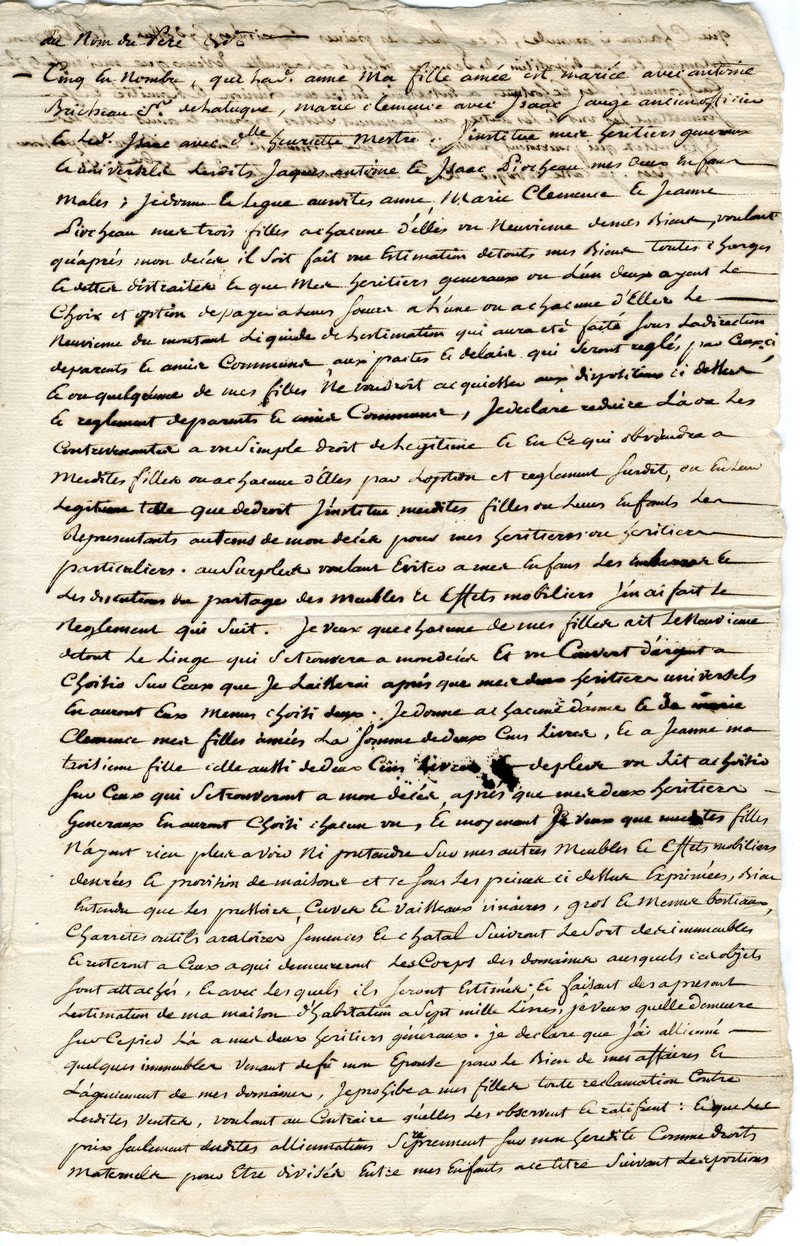 du Nom du Pere &c
Cinq en Nombre, que lad. anne Ma fille ainée est mariée avec antoine
Bricheau Sr. de , marie clemence avec Isaac Jauge ancien officier
& led. Isaac avec dlle henriette Mestre. J'institue mes heritiers generaux
& universels Lesdits Jaques antoine & Isaac Piocheau mes deux Enfans
Males ; Je donne & Legue auxdites anne, Marie Clemence & Jeanne
Piocheau mes trois filles a chacune d'elles un Neuvieme de mes Biens, voulant
qu'après mon decés il soit fait une Estimation de touts mes Biens toutes charges
& dettes distraites & que Mes heritiers generaux ou L'un deux ayent Le
Choix et option de payer a Leurs soeurs a L'une ou a chacune d'Elles Le
Neuvieme du montant Liquide de Lestimation qui aura été faite sous La direction
de parents & amis Communs, aux pactes & delais qui seront reglés par Ceux ci
& ou quelqu'une de mes filles Ne voudroit acquiesser aux dispositions ci dessus
& reglement de parents & amis Communs, Je declare reduire La ou Les
Contrevenantes a un Simple droit de Legitime & En Ce qui obviendra a
Mesdites filles ou a chacune d'Elles par Loption et reglement susdit, ou En Leur
Legitime telle que de droit J'institue mesdites filles ou Leurs Enfants Les
Representants au tems de mon decés pour mes heritieres ou heritiers
particuliers. au Surplus voulant Eviter a mes Enfans Les Embarras &
Les discutions du partage des Meubles & Effets mobiliers J'en ai fait Le
Reglement qui suit. Je veux que chacune de mes filles ait Le Neuvieme
de tout Le Linge qui se trouvera a mon decés Et un Couvert d'argent a
Choisir Sur Ceux que Je Laisserai après que mes deux heritiers universels
En auront Eux Mêmes choisi deux. Je donne a chacune d'anne & de marie
Clemence mes filles ainées La somme de deux Cens Livres, & a Jeanne ma
troisieme fille celle aussi de deux Cens Livres & de plus un Lit a choisir
sur Ceux qui Se trouveront a mon decés, après que mes deux heritiers
Generaux En auront Choisi chacun un, & moyenant Je veux que mesdites filles
N'ayent rien plus a voir Ni pretendre Sur mes autres Meubles & Effets mobiliers
denrées & provision de maisons et ce sous Les peines ci dessus Exprimées, Bien
Entendu que Les pressoirs, Cuves & Vaisseaux vinaires, gros & Menus bestiaux,
Charretes outils aratoires semences & chatal Suivront Le Sort de ces immeubles
& resteront a Ceux a qui demeureront Les Corps des domaines auxquels ces objets
sont attachés, & avec Lesquels ils seront Estimés ; & faisant des a present
Lestimation de ma maison d'habitation a Sept mille Livres, je veux quelle demeure
sur Ce pied La a mes deux heritiers généraux. je declare que J'ai allienné
quelques immeubles Venant de fû mon Epouse pour Le Bien de mes affaires &
L'aquiement de mes domaines, Je prohibe a mes filles toute reclamation Contre
Lesdites Ventes, voulant au Contraire quelles Les observent & ratifient : & que Les
prix seulement desdites alliennations Se reprennent sur mon heredité Comme droits
Maternels pour Etre divisés Entre mes Enfants a ce titre Suivant Les portions